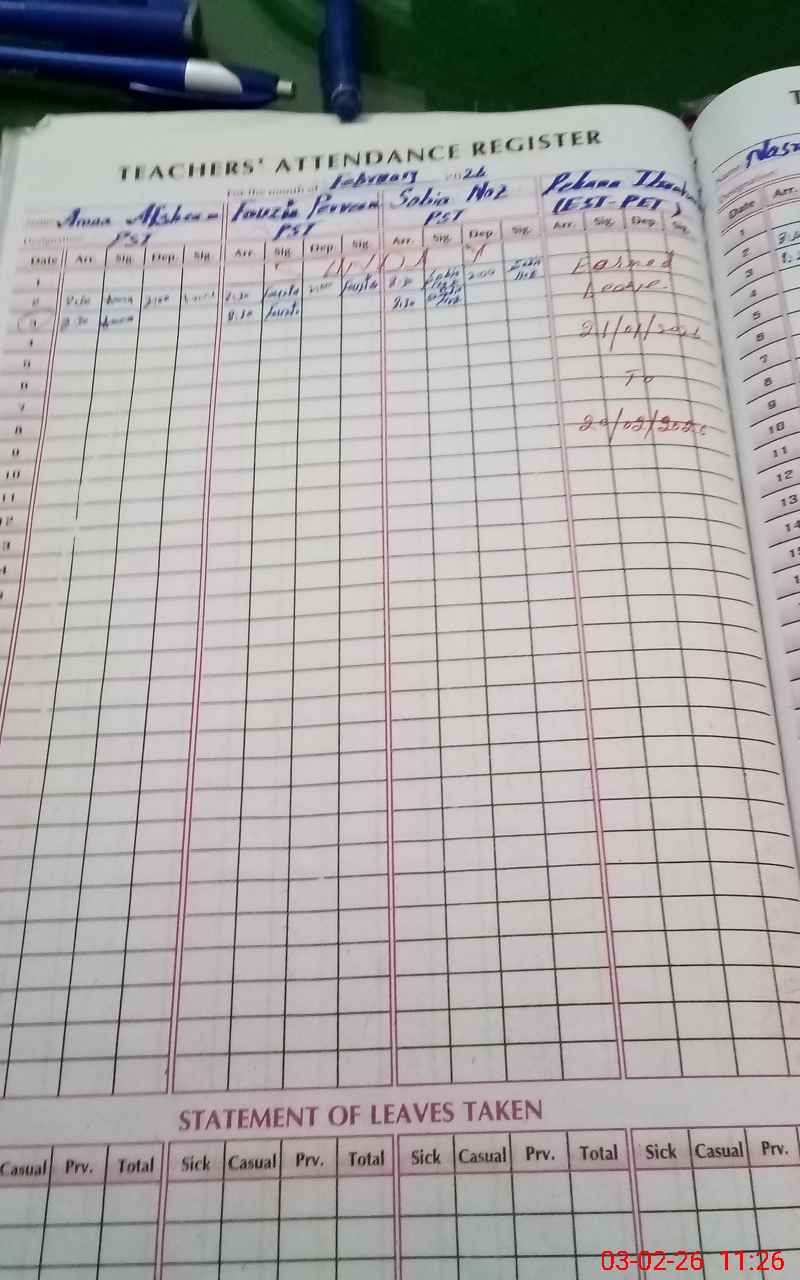 TEACHERS' ATTENDANCE REGISTER
For the month of February 2026
Amna Afsheen Fouzia Perveen Sobia Naz
PST PST PST (EST-PET)
Date Arr. Sig. Dep. Sig. Arr. Sig. Dep. Sig. Arr. Sig. Dep. Sig. Arr. Sig. Dep. Sig.
1 Earned
2 8:30 Amna 2:00 8:30 Fouzia 2:00 Fouzia 8:30 Sobia Naz 2:00 Sobia Naz Leave
3 8:30 Amna 8:30 Fouzia 8:30 Sobia Naz
4 21/01/2026
5
6 To
7
8 20/02/2026
9
10
11
12
Date Arr.
1
2
3
4
5
6
7
8
9
10
11
12
13
14
STATEMENT OF LEAVES TAKEN
Casual Prv. Total Sick Casual Prv. Total Sick Casual Prv. Total Sick Casual Prv.
03-02-26 11:26